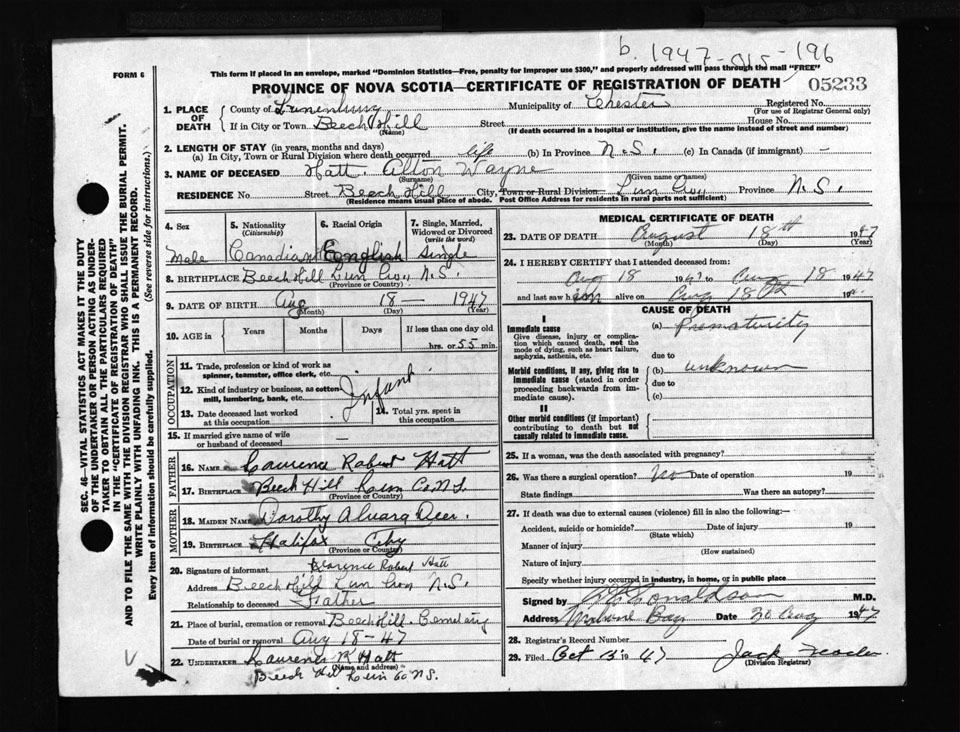 b. 1947-015-196
FORM 6
This form if placed in an envelope, marked "Dominion Statistics—Free, penalty for improper use $300," and properly addressed will pass through the mail "FREE"
PROVINCE OF NOVA SCOTIA—CERTIFICATE OF REGISTRATION OF DEATH
05233
1. PLACE OF DEATH
County of Lunenburg Municipality of Chester Registered No.
(For use of Registrar General only)
If in City or Town Beech Hill Street House No.
(Name) (If death occurred in a hospital or institution, give the name instead of street and number)
2. LENGTH OF STAY (in years, months and days)
(a) In City, Town or Rural Division where death occurred life (b) In Province N.S. (c) In Canada (if immigrant) -
3. NAME OF DECEASED Hatt Alton Wayne
(Surname) (Given name or names)
RESIDENCE No. Street Beech Hill City, Town or Rural Division Lun Province N.S.
(Residence means usual place of abode. Post Office Address for residents in rural parts not sufficient)
4. Sex
Male
5. Nationality
(Citizenship)
Canadian
6. Racial Origin
English
7. Single, Married, Widowed or Divorced
(write the word)
Single
8. BIRTHPLACE Beech Hill Lun N.S.
(Province or Country)
9. DATE OF BIRTH Aug 18 — 1947
(Month) (Day) (Year)
10. AGE in
Years
Months
Days
If less than one day old
hrs. or 55 min.
OCCUPATION
11. Trade, profession or kind of work as spinner, teamster, office clerk, etc.
12. Kind of industry or business, as cotton mill, lumbering, bank, etc.
Infant
13. Date deceased last worked at this occupation
14. Total yrs. spent in this occupation
15. If married give name of wife or husband of deceased —
FATHER
16. NAME Laurence Robert Hatt
17. BIRTHPLACE Beech Hill Co N.S.
(Province or Country)
MOTHER
18. MAIDEN NAME Dorothy
19. BIRTHPLACE Halifax City
(Province or Country)
20. Signature of informant Robert Hatt
Address Beech Hill Lun N.S.
Relationship to deceased Father
21. Place of burial, cremation or removal Beech Hill Cemetery
Date of burial or removal Aug 18-47
22. UNDERTAKER Laurence R Hatt
(Name and address)
Beech Hill Lun Co N.S.
MEDICAL CERTIFICATE OF DEATH
23. DATE OF DEATH August 18th 1947
(Month) (Day) (Year)
24. I HEREBY CERTIFY that I attended deceased from
Aug 18 1947 to Aug 18 1947
and last saw him alive on Aug 18th 19
CAUSE OF DEATH
I
Immediate cause
Give disease, injury or complication which caused death, not the mode of dying, such as heart failure, asphyxia, asthenia, etc.
(a) Prematurity
due to
Morbid conditions, if any, giving rise to immediate cause (stated in order proceeding backwards from immediate cause).
(b) unknown
due to
(c)
II
Other morbid conditions (if important) contributing to death but not causally related to immediate cause.
25. If a woman, was the death associated with pregnancy?
26. Was there a surgical operation? No Date of operation 19
State findings Was there an autopsy?
27. If death was due to external causes (violence) fill in also the following:—
Accident, suicide or homicide? Date of injury 19
(State which)
Manner of injury
(How sustained)
Nature of injury
Specify whether injury occurred in industry, in home, or in public place
Signed by Donaldson M.D.
Address Mahone Bay Date 20 Aug 1947
28. Registrar's Record Number
29. Filed Oct 13 1947 Jack
(Division Registrar)
SEC. 46—VITAL STATISTICS ACT MAKES IT THE DUTY
OF THE UNDERTAKER OR PERSON ACTING AS UNDER-
TAKER TO OBTAIN ALL THE PARTICULARS REQUIRED
IN THE "CERTIFICATE OF REGISTRATION OF DEATH"
AND TO FILE THE SAME WITH THE DIVISION REGISTRAR WHO SHALL ISSUE THE BURIAL PERMIT.
WRITE PLAINLY WITH UNFADING INK. THIS IS A PERMANENT RECORD.
Every item of information should be carefully supplied. (See reverse side for instructions.)